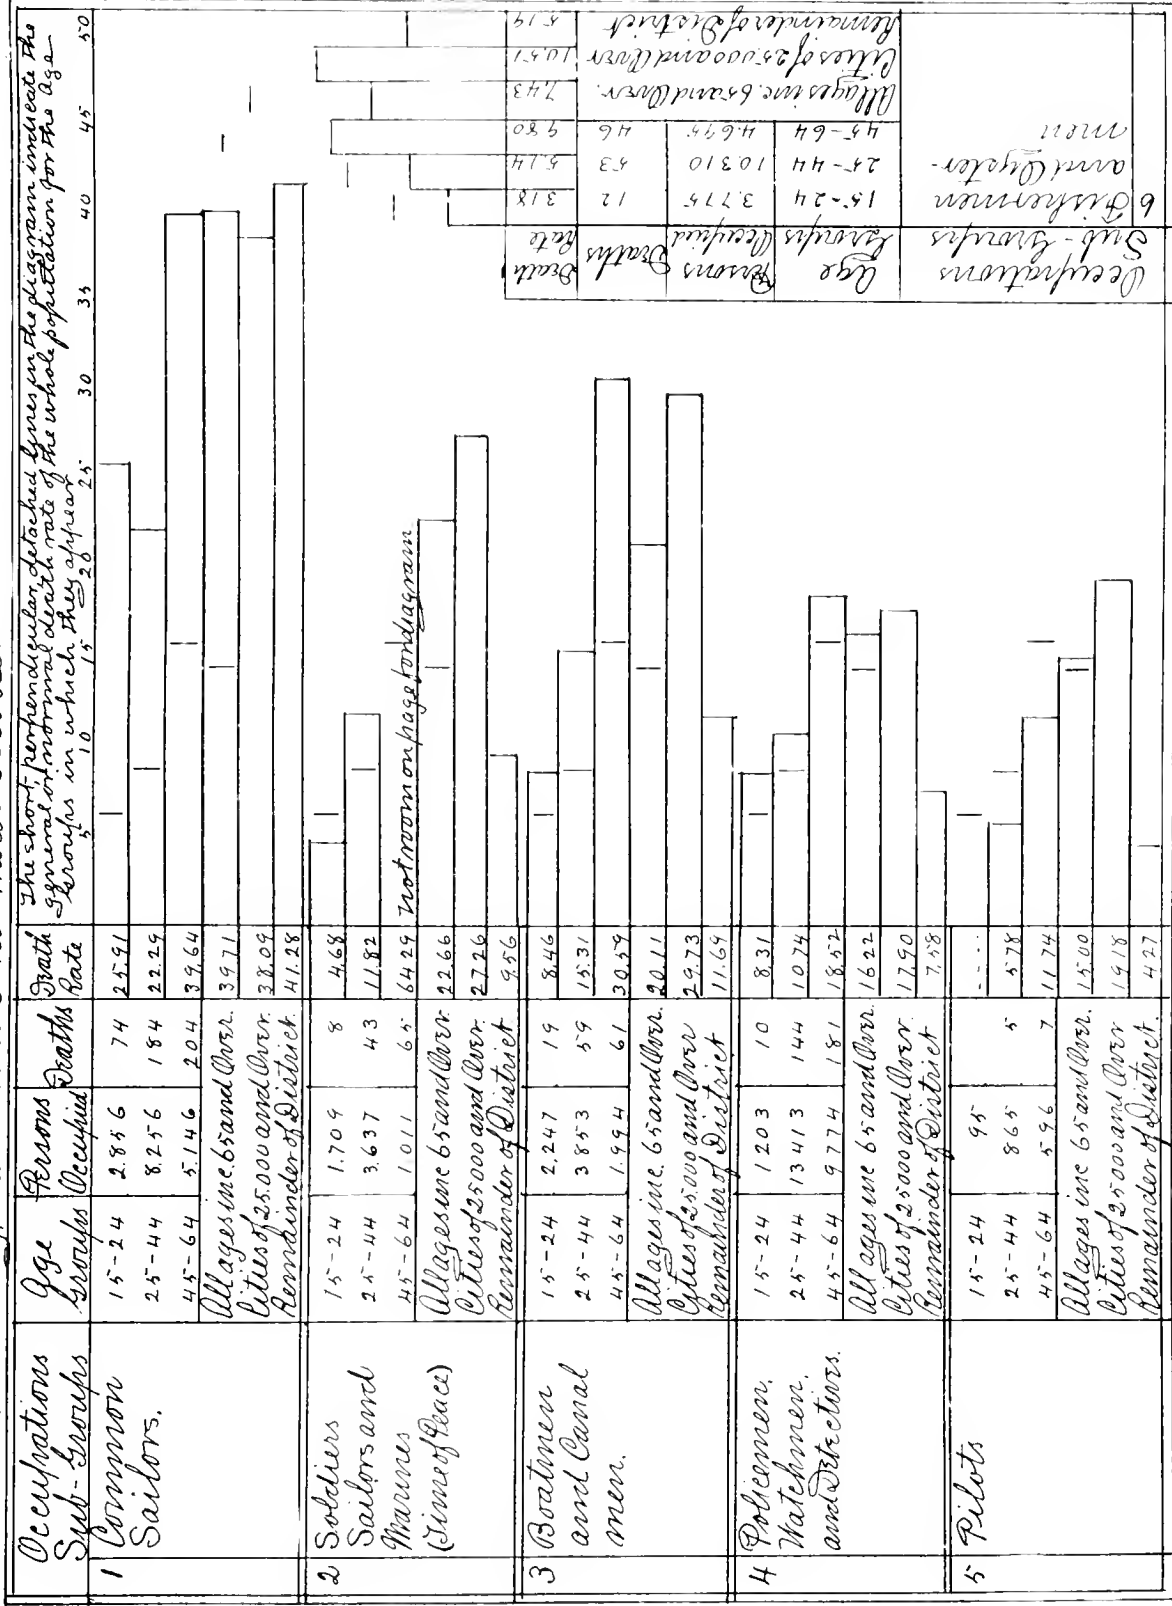 The short, perpendicular, detached lines in the diagram indicate the
general or normal death rate of the whole population for the age
groups in which they appear
5 10 15 20 25 30 35 40 45 50
Occupations Sub-Groups Age Groups Persons Occupied Deaths Death Rate
1 Common Sailors. 15-24 2.856 74 25.91
25-44 8.256 184 22.29
45-64 5.146 204 39.64
All ages inc. 65 and Over. 39.71
Cities of 25.000 and Over. 38.09
Remainder of District. 41.28
2 Soldiers Sailors and Marines (Time of Peace) 15-24 1.709 8 4.68
25-44 3.637 43 11.82
45-64 1011 65 64.29 not room on page for diagram
All ages inc 65 and Over. 22.66
Cities of 25000 and Over. 27.26
Remainder of District 9.56
3 Boatmen and Canal men. 15-24 2.247 19 8.46
25-44 3853 59 15.31
45-64 1.994 61 30.59
All ages inc. 65 and Over. 20.11
Cities of 25000 and Over 29.73
Remainder of District 11.69
4 Policemen. Watchmen. and Detectives. 15-24 1203 10 8.31
25-44 13413 144 10.74
45-64 9774 181 18.52
All ages inc 65 and Over. 16.22
Cities of 25000 and Over. 17.90
Remainder of District 7.58
5 Pilots 15-24 95 ----
25-44 865 5 5.78
45-64 596 7 11.74
All ages inc 65 and Over. 15.00
Cities of 25000 and Over 19.18
Remainder of District. 4.27
Occupations Sub-Groups Age Groups Persons Occupied Deaths Death Rate
6 Fishermen and Oyster-men 15-24 3.775 12 3.18
25-44 10.310 53 5.14
45-64 4.695 46 9.80
All ages inc. 65 and Over. 7.43
Cities of 25.000 and Over 10.51
Remainder of District 5.19